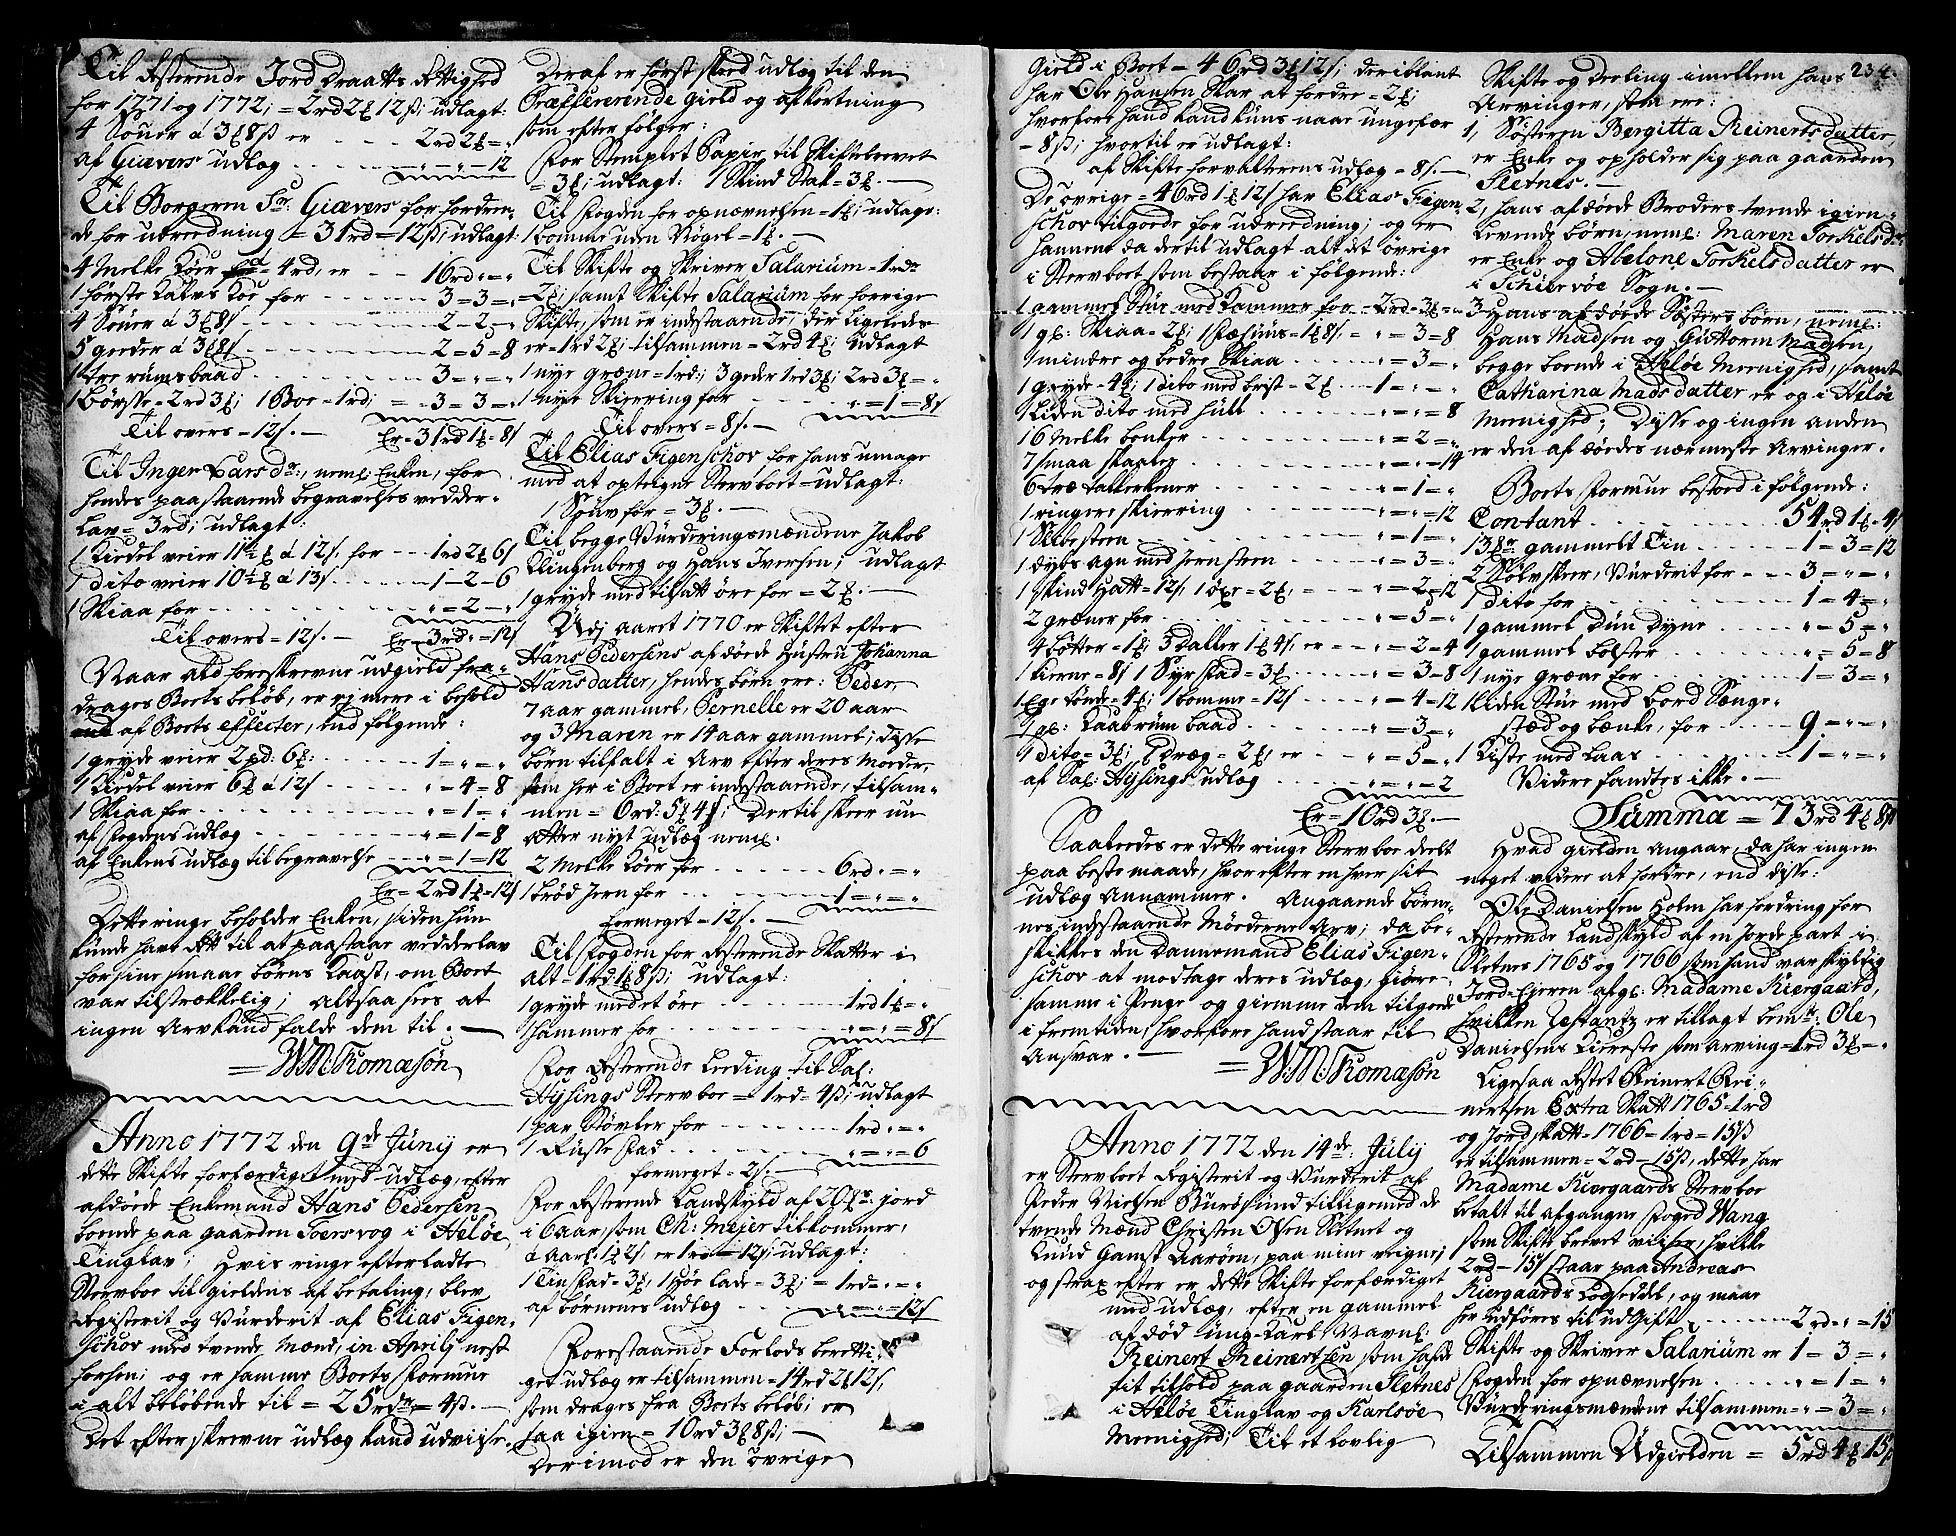 Til Resterende Jord Draatts Rettighed
for 1771 og 1772; = 2rd 2ß 12ß; udlagt:
4 Souer á 3 8ß er - - - 2rd 2 = "
af Giævers udlæg - - - " = " = 12
Til Borgeren Sr: Giævers for fordren-
de for udreedning = 31rd = 12ß; udlagt:
4 Melke Kiør = 4rd, er - - 16rd " = "
1 første Kalvs Koe for - - - 3 = 3 = "
4 Souer á 3 8ß - - - 2 - 2 - "
5 geeder á 3 8ß - - - 2 = 5 = 8
1 tre rums baad - - - 3 = " = "
1 Børsse = 2rd 3; 1 Boe = 1rd; = 3 = 3 = "
Til overs = 12ß. — Er = 31rd 1 = 8ß
Til Inger Larsdr:, neml: Enken, for
hendes paastaaende begravelses vedder-
lav = 3rd; udlagt:
1 Kiedel veier 11½ á 12ß, for - - 1rd 2 6ß
1 dito veier 10½ á 13ß - - - 1 - 2 - 6
1 Skiaa for - - - " = 2 - "
Til overs = 12ß. — Er = 3rd " = 12ß
Naar all foreskrevne udgield fra-
drages Boets beløb, er ej mere i behold
af Boets effecter, end følgende:
1 gryde veier 2 pd: 6: - - - 1 = " = "
1 Kiedel veier 6 á 12ß - - - " = 4 = 8
1 Skiaa for - - - " = 1 = "
af fogdens udlæg - - - " = 1 = 8
af Enkens udlæg til begravelse - - " = 1 = 12
Er = 2rd 1 = 12ß
Dette ringe beholder Enken, siden hun
kunde have Rett til at paastaae vedderlav
for sine smaae børns Kaast, om Boet
var tilstrækkelig; Altsaa sees at
ingen Arv kand falde dem til. —
= W. M. Thomasøn
Anno 1772 den 9de Junij er
dette Skifte forfærdiget med udlæg, efter
afdøde Enkemand Hans Pedersen
boende paa gaarden Toersvog i Heløe
Tinglav; Hvis ringe efterladte
Stervboe til gieldens afbetaling, blev
Registerit og Vurderit af Elias Figen-
schov med tvende Mænd, in Aprilj nest
forhen; og er samme Boets formue
i alt beløbende til = 25rdr = 4ß. —
Det efterskrevne udlæg kand udviise.
Deraf er først skeed udlæg til den
Præfererende gield og afkortning
som efter følger:
For Stemplet Papir til Skiftebrevet
= 3; udlagt: 1 Skind Stak = 3. —
Til fogden for opnævnelsen = 1; udlagt:
1 bomme uden Nøgel = 1. —
Til Skifte og Skriver Salarium = 1rdr
2; samt Skifte Salarium for forrige
Skifte, som er indestaaende, der ligeledes
er = 1rd 2; tilsammen = 2rd 4; Udlagt
1 nye græne = 1rd; 3 geder 1rd 3; 2rd 3 = "
1 nye Skierring for - - - " = 1 = 8ß
Til overs = 8ß. —
Til Elias Figenschov for hans umage
med at opteigne Stervboet udlagt:
1 Souv for = 3. —
Til begge Vurderingsmændene Jakob
Klingenberg og Hans Iversen; udlagt
1 gryde med tilsatt øre for = 2. —
Udj aaret 1770 er Skiftet efter
Hans Pedersens afdøde Hustru Johanna
Hansdatter, hendes børn ere: Peder
7 aar gammel, Pernelle er 20 aar
og 3 Maren er 14 aar gammel; disse
børn tilfalt i Arv efter deres Moeder,
som her i Boet er indestaaende, tilsam-
men = 6rd: 5 4ß; Dertil skeer nu
atter nyt udlæg neml:
2 Melke Kiør for - - - 6rd " = "
1 brød Jern for - - - 1 = " = "
formeget = 12ß. —
Til fogden for Resterende Skatter i
alt = 1rd 1 8ß; udlagt:
1 gryde med et øre - - - 1rd 1 = "
1 hammer for - - - " = " = 8ß
For Resterende Leeding til Sal:
Hysings Stervboe = 1rd = 4ß; udlagt
1 par Støvler for - - - 1rd " = "
1 Russe stad - - - " = " = 6
formeget = 2ß. —
For Resterende Landskyld af 20 mr: jord
i 6 aar, som Ch: Mejer tilkommer,
á aarl: 1 2ß er 1rd = 12ß; udlagt:
1 Tinfad = 3, 1 Høe lade = 3; = 1rd = " = "
af børnenes udlæg - - - " = " = 12ß
Forestaaende Forlods beretti-
get udlæg er tilsammen = 14rd 2 12ß;
som drages fra Boets beløb; er
saa igien = 10rd 3 8ß; —
Derimod er den øvrige
Gield i Boet = 46rd 3 12ß; deriblant
har Ole Hansen Skar at fordre = 2;
hvorfore hand kand kuns naae ungefær
= 8ß; hvortil er udlagt:
af Skifte forvalterens udlæg = 8ß. —
De øvrige = 46rd 1 12ß har Elias Figen-
schov tilgode for udreedning; og er
hannem da dertil udlagt alt det øvrige
i Stervboet som bestaar i følgende:
1 gammel Stue med Kammer for - 2rd = 3 = "
1 gl: Skiaa = 2; 1 Fæhuus = 1 8ß; = " = 3 = 8
1 mindre og bedre Skiaa - - - " = 3 = "
1 gryde = 4; 1 dito med brest = 2 - - 1 = " = "
1 Liden dito med hull - - - " = " = 8
16 Melke bonker - - - " = 2 = "
7 smaa skaaler - - - " = " = 14
6 træ tallerkener - - - " = 1 = "
1 ringere skierring - - - " = " = 12
1 Slibesteen - - - " = 1 = "
1 dybs agn med Jern steen - - - " = 3 = "
1 Skind Hatt = 12ß, 1 øxe = 2, - - " = 2 = 12
2 græner for - - - " = 5 = "
4 bøtter = 1; 3 daller 1 4ß, er - - " = 2 = 4
1 Kierne = 8ß 1 Syrstad = 3 - - " = 3 = 8
1 Ege tønde = 4; 1 bomme = 12ß - - " = 4 = 12
1 gl: Laaerum baad - - - " = 3 = "
1 dito = 3; 1 dræg = 2, er - - " = 5 = "
af Sal: Hysings udlæg - - - " = " = 2
Er = 10rd 3. —
Saaledes er dette ringe Stervboe deelt
paa beste maade, hvorefter enhver sit
udlæg Annammer. Angaaende Børne-
nes indestaaende Møderne Arv; da be-
skikkes den Dannemand Elias Figen-
schov at modtage deres udlæg, giøre
samme i Penge og giemme dem tilgode
i fremtiden, hvorfore hand staar til
Ansvar. —
= W. M. Thomasøn
Anno 1772 den 14de Julij
er Stervboet Registerit og Vurderit af
Peder Nielsen Burøsund tilligemed de
tvende Mænd Christen Olsen Sletnes og
Knud Gamst Aarøen, paa mine veigne;
og strax efter er dette Skifte forfærdiget
med udlæg, efter en gammel
afdød ung-Karl, Navnl:
Reinert Reinertsen som hafde
sit tilhold paa gaarden Sletnes
i Heløe Tinglav og Karlsøe
Menighed; Til et lovlig
234.
Skifte og Deeling imellem hans
Arvinger, som ere:
1, Søsteren Bergitta Reinertsdatter,
er Enke og opholder sig paa gaarden
Sletnes. —
2, hans afdøde Broders tvende igien-
levende børn, neml: Maren Torkelsdr
er Enke og Abelone Torkelsdatter er
i Schiervøe Sogn. —
3, Hans afdøde Søsters børn, neml:
Hans Madsen og Guttorm Madsen,
begge boende i Heløe Menighed, samt
Catharina Madsdatter er og i Heløe
Menighed; Disse og ingen anden
er den afdødes nærmeste Arvinger.
Boets formue bestoed i følgende:
Contant - - - 54rd 1 - 4ß
13 mr gammelt Tin - - - 1 = 3 = 12
2 Sølvskeer, Vurderit for - - 3 = " = "
1 dito for - - - 1 = 4 = "
1 gammel Dun Dyne - - - " = 5 = "
1 gammel bolster - - - " = 5 = 8
1 nye græne for - - - 1 = 3 = "
1 Liden Stue med bord Senge-
sted og bænke, for - - - 9 = " = "
1 Kiste med Laas - - - 1 = " = "
Videre fandtes ikke. —
Summa = 73rd 4 8ß
Hvad gielden angaar, da har ingen
noget videre at fordre, end disse:
Ole Danielsen Holm har fordring for
Resterende Landskyld af en jorde part i
Sletnes 1765 og 1766 som hand var skyldig
Jord-Ejeren afgl: Madame Kiergaard,
hvilken Restantz er tillagt bemte: Ole
Danielsens Kiereste som Arving = 1rd 3 = "
Ligesaa Restet Reinert Rei-
nertsen Extra Skatt 1765 = 1rd
og Jordskatt = 1766 = 1rd = 15ß
er tilsammen = 2rd = 15ß, dette har
Madame Kiergaards Stervboe
betalt til afgangne foged Wang
som Skifte brevet viiser, hvilke
2rd = 15ß staar paa Andreas
Kiergaards Lodseddel, og maae
her indføres til udgift - - - 2rd = " = 15
Skifte og Skriver Salarium er 1 = 3 = "
Fogden for opnævnelsen - - - " = 1 = "
Vurderingsmændene tilsammen = " = 3 = "
Tilsammen Udgielden = 5rd 4 15ß